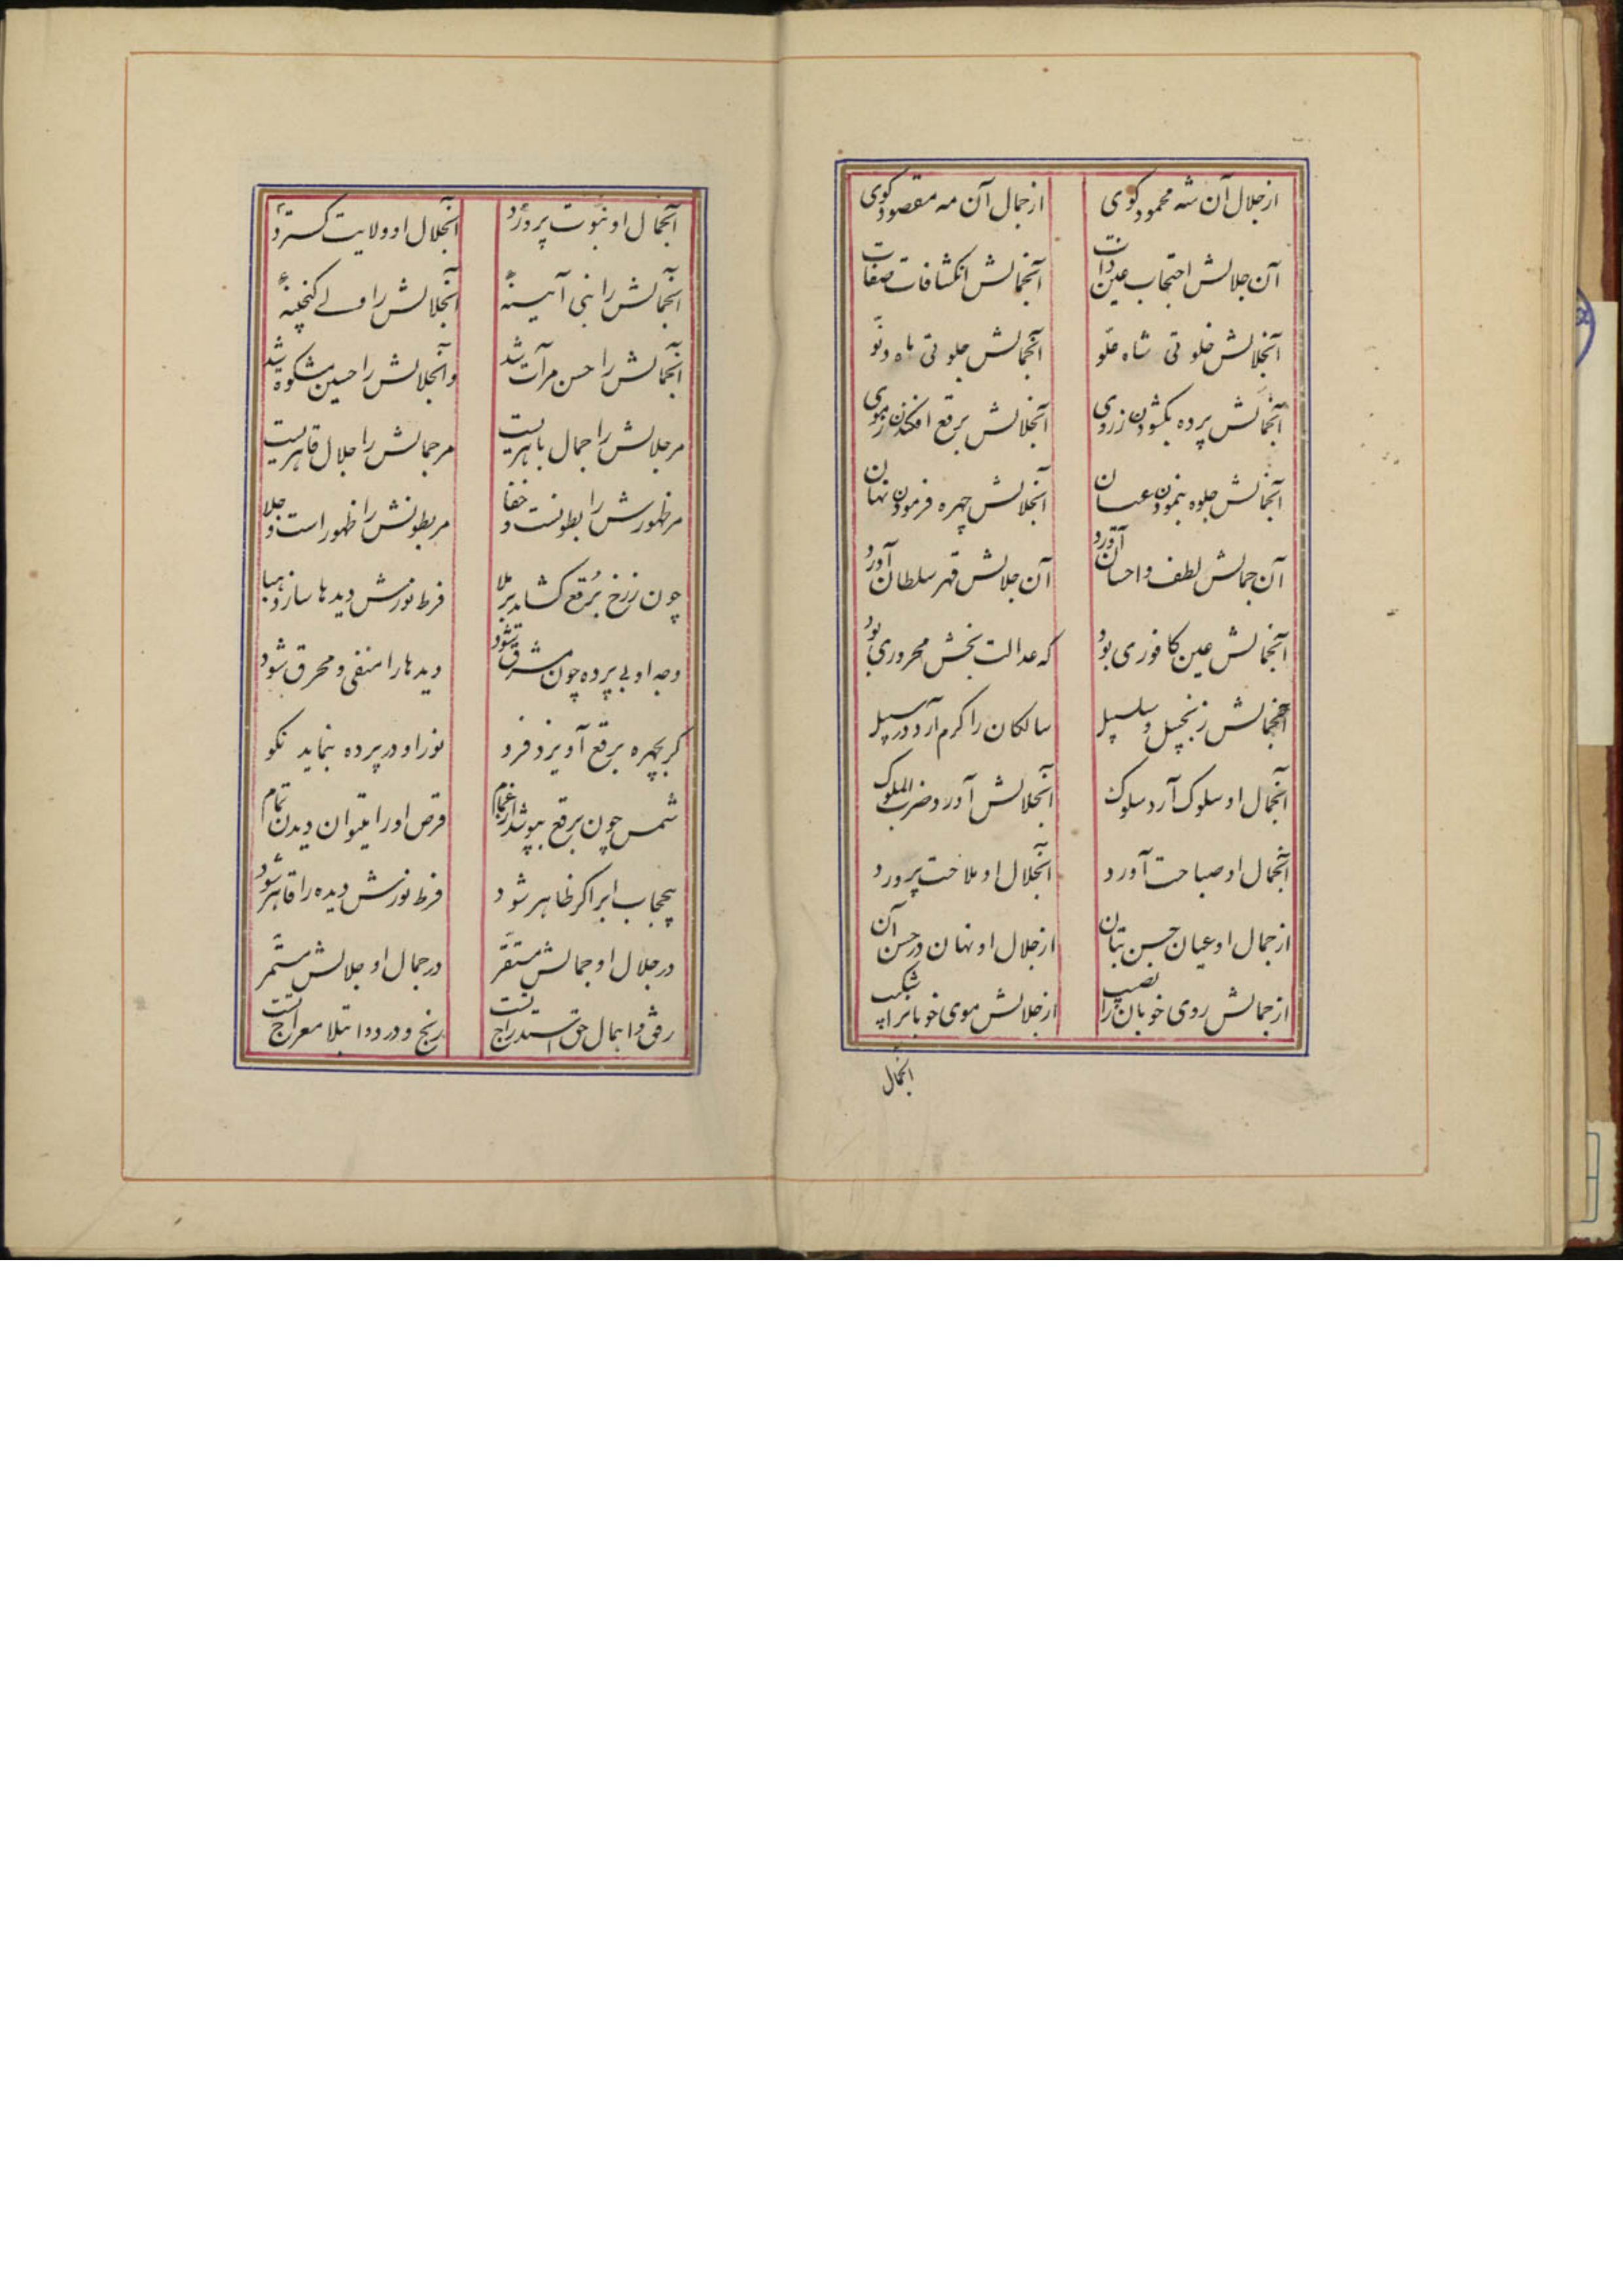 از جلال آن شه محمود کوی از جمال آن مه مقصود کوی
آن جلالش احتجاب عین ذات آنجمالش انکشافات صفات
آنجلالش خلوتی شاه علو آنجمالش جلوتی ماه دنو
آنجمالش پرده بکشودن ز روی آنجلالش برقع افکندن ز موی
آنجمالش جلوه بنمودن عیان آنجلالش چهره فرمودن نهان
آن جمالش لطف و احسان آورد آن جلالش قهر سلطان آورد
آنجمالش عین کافوری بود که عدالت بخش محروری بود
آنجمالش زنجبیل و سلسبیل سالکان را کرم آرد در سبیل
آنجمال او سلوک آرد سلوک آنجلالش آورد ضرب الملوک
آنجمال او صباحت آورد آنجلال او ملاحت پرورد
از جمال او عیان حسن بتان از جلال او نهان در حسن آن
از جمالش روی خوبان را نصیب از جلالش موی خوبانرا
آنجمال
آنجمال او نبوت پرورد آنجلال او ولایت کسترد
آنجمالش را نبی آیینه آنجلالش را ولی کنجینه
آنجمالش را حسن مرآت شد وانجلالش را حسین مشکوة شد
مر جلالش را جمال باهریست مر جمالش را جلال قاهریست
مر ظهورش را بطونست و خفا مر بطونش را ظهور است و جلا
چون ز رخ برقع کشاید برملا فرط نورش دیدها سازد هبا
وجه او بی پرده چون مشرق شود دیدها را منفی و محرق شود
کر بچهره برقع آویزد فرو نور او در پرده بنماید نکو
شمس چون برقع بپوشد از غمام قرص او را میتوان دیدن تمام
بیحجاب ابر اکر ظاهر شود فرط نورش دیده را قاهر شود
در جلال او جمالش مستقر در جمال او جلالش مستمر
رفق و امهال حق استدراج تست رنج و درد و ابتلا معراج تست